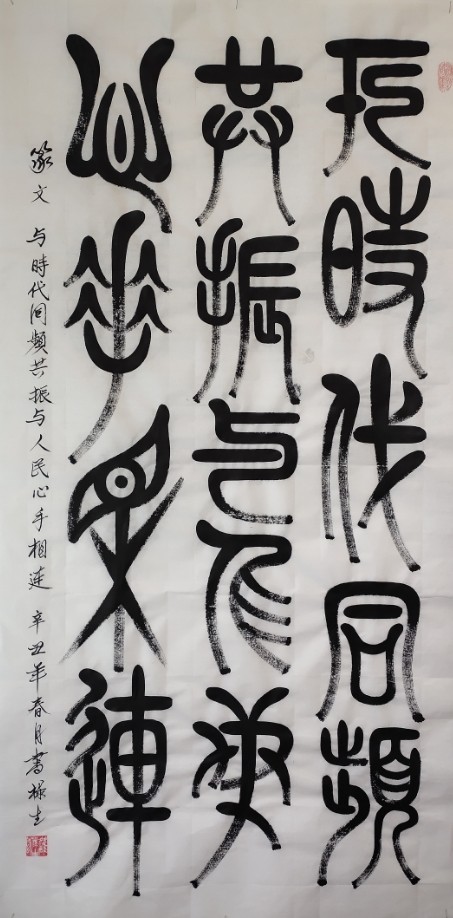 与時代同頻
共振与人民
心手相連
篆文 与時代同频共振与人民心手相連 辛丑年春月書